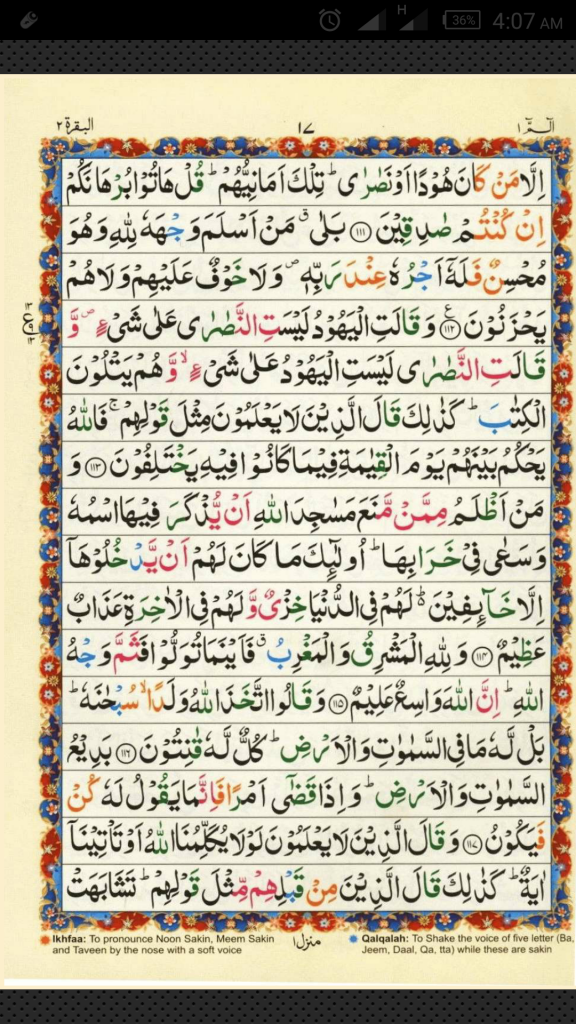 H 36% 4:07 AM
البقرة ٢ ١٧ الٓمّٓ ١
اِلَّا مَنْ كَانَ هُوْدًا اَوْ نَصٰرٰى ؕ تِلْكَ اَمَانِيُّهُمْ ؕ قُلْ هَاتُوْا بُرْهَانَكُمْ
اِنْ كُنْتُمْ صٰدِقِيْنَ ﴿۱۱۱﴾ بَلٰى ۗ مَنْ اَسْلَمَ وَجْهَهٗ لِلّٰهِ وَهُوَ
مُحْسِنٌ فَلَهٗٓ اَجْرُهٗ عِنْدَ رَبِّهٖ ۪ وَلَا خَوْفٌ عَلَيْهِمْ وَلَا هُمْ
يَحْزَنُوْنَ ﴿۱۱۲﴾ ع وَقَالَتِ الْيَهُوْدُ لَيْسَتِ النَّصٰرٰى عَلٰى شَىْءٍ ۪ وَّ
قَالَتِ النَّصٰرٰى لَيْسَتِ الْيَهُوْدُ عَلٰى شَىْءٍ ۙ وَّهُمْ يَتْلُوْنَ
الْكِتٰبَ ؕ كَذٰلِكَ قَالَ الَّذِيْنَ لَا يَعْلَمُوْنَ مِثْلَ قَوْلِهِمْ ۚ فَاللّٰهُ
يَحْكُمُ بَيْنَهُمْ يَوْمَ الْقِيٰمَةِ فِيْمَا كَانُوْا فِيْهِ يَخْتَلِفُوْنَ ﴿۱۱۳﴾ وَ
مَنْ اَظْلَمُ مِمَّنْ مَّنَعَ مَسٰجِدَ اللّٰهِ اَنْ يُّذْكَرَ فِيْهَا اسْمُهٗ
وَسَعٰى فِيْ خَرَابِهَا ؕ اُولٰٓئِكَ مَا كَانَ لَهُمْ اَنْ يَّدْخُلُوْهَآ
اِلَّا خَآئِفِيْنَ ۬ؕ لَهُمْ فِي الدُّنْيَا خِزْىٌ وَّلَهُمْ فِي الْاٰخِرَةِ عَذَابٌ
عَظِيْمٌ ﴿۱۱۴﴾ وَلِلّٰهِ الْمَشْرِقُ وَالْمَغْرِبُ ۗ فَاَيْنَمَا تُوَلُّوْا فَثَمَّ وَجْهُ
اللّٰهِ ؕ اِنَّ اللّٰهَ وَاسِعٌ عَلِيْمٌ ﴿۱۱۵﴾ وَقَالُوا اتَّخَذَ اللّٰهُ وَلَدًا ۙ سُبْحٰنَهٗ ؕ
بَلْ لَّهٗ مَا فِي السَّمٰوٰتِ وَالْاَرْضِ ؕ كُلٌّ لَّهٗ قٰنِتُوْنَ ﴿۱۱۶﴾ بَدِيْعُ
السَّمٰوٰتِ وَالْاَرْضِ ؕ وَاِذَا قَضٰٓى اَمْرًا فَاِنَّمَا يَقُوْلُ لَهٗ كُنْ
فَيَكُوْنُ ﴿۱۱۷﴾ وَقَالَ الَّذِيْنَ لَا يَعْلَمُوْنَ لَوْلَا يُكَلِّمُنَا اللّٰهُ اَوْ تَاْتِيْنَآ
اٰيَةٌ ؕ كَذٰلِكَ قَالَ الَّذِيْنَ مِنْ قَبْلِهِمْ مِّثْلَ قَوْلِهِمْ ؕ تَشَابَهَتْ
Ikhfaa: To pronounce Noon Sakin, Meem Sakin
and Taveen by the nose with a soft voice
منزل ١
Qalqalah: To Shake the voice of five letter (Ba,
Jeem, Daal, Qa, tta) while these are sakin